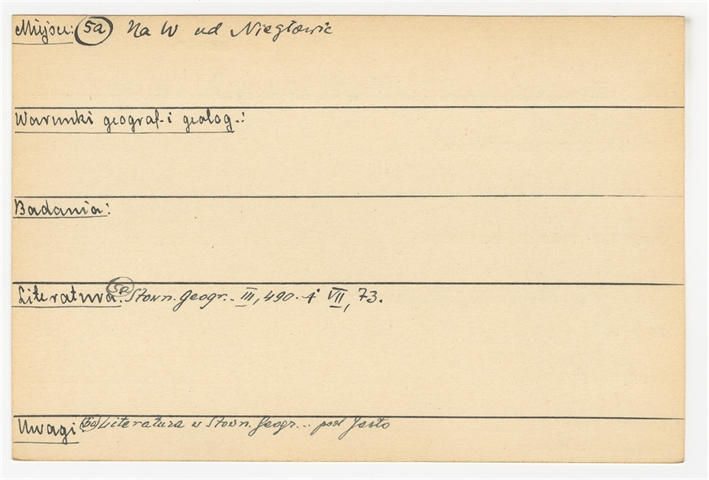 Miejsce: 5a Na W od Niegłowic
Warunki geograf. i geolog.:
Badania:
Literatura: 5a Słown. Geogr. III, 490. i VII, 73.
Uwagi: 5a Literatura w Słown. Geogr... pod Jasło